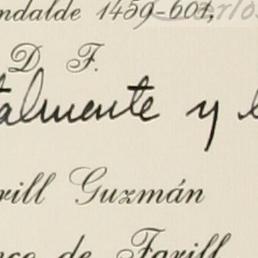 ndalde 1459-601,
D. F.
talmente y
rill Guzmán
nco de Farill